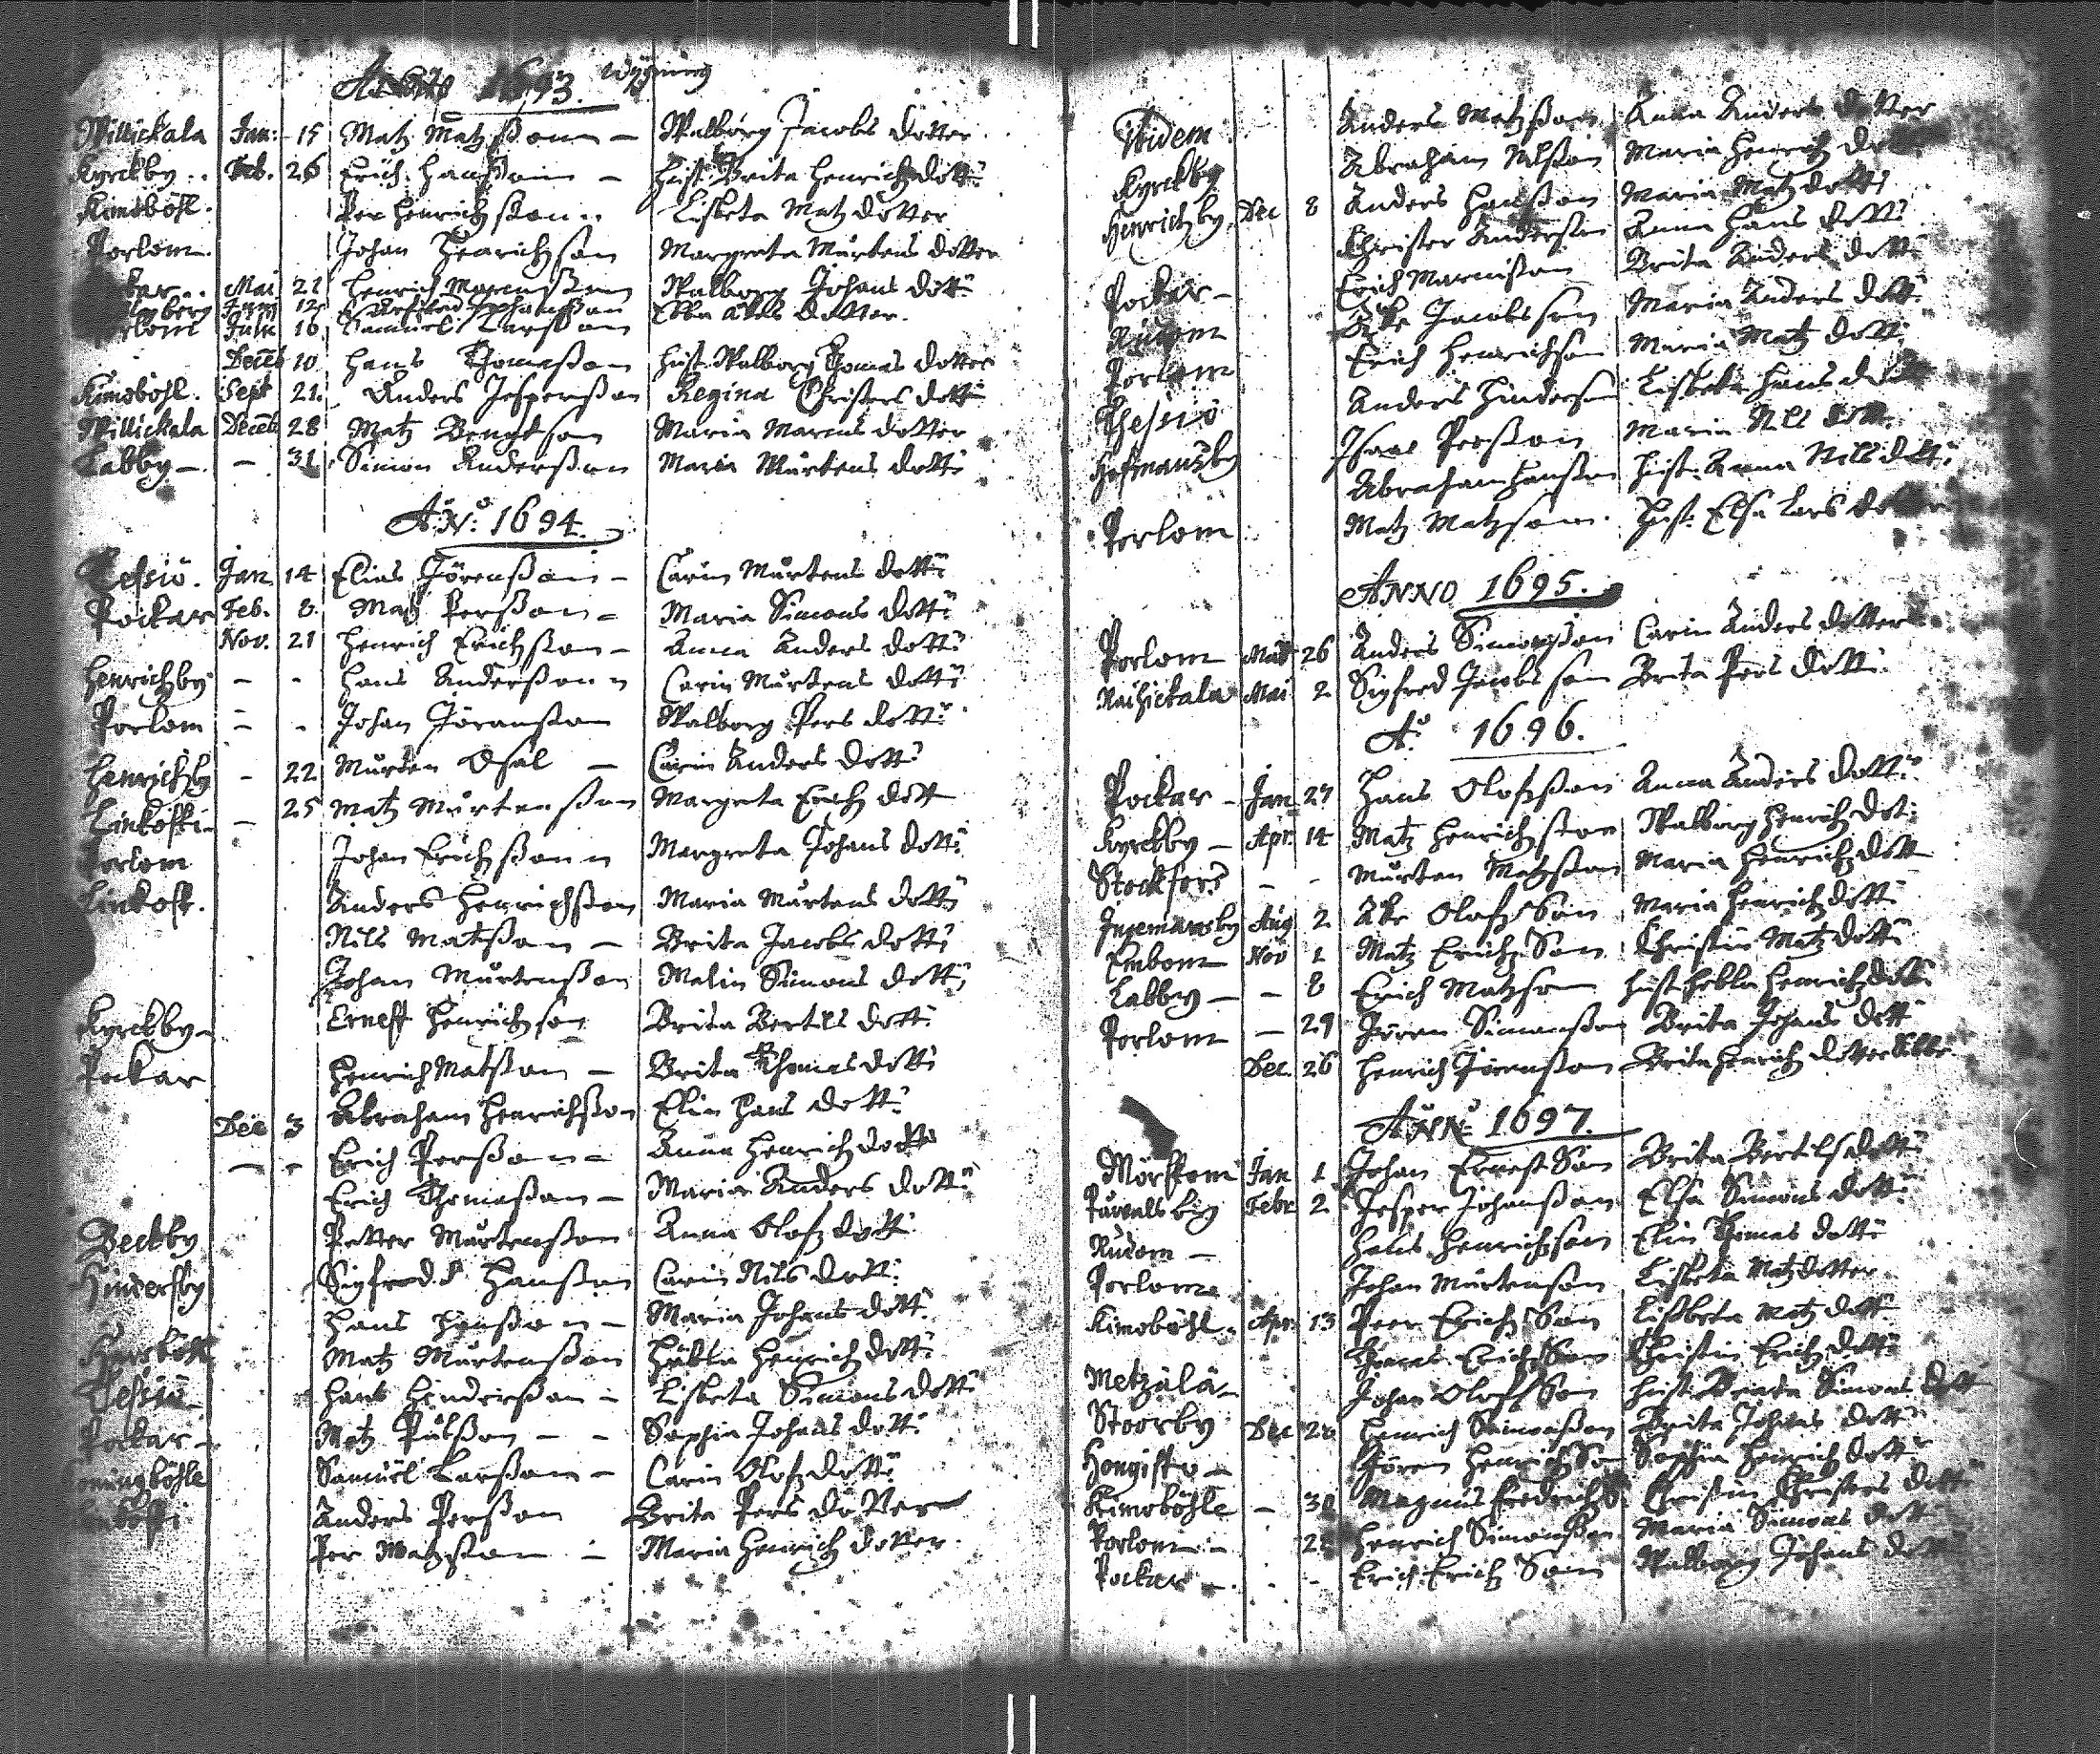 1693. wigning
Willickala Jan: 15 Matz Matzsson – Walborg Jacobs dotter
Kyrckby.. Feb. 26 Erich Hansson – hust. Brita Henrichz dott:
Kimoböhl. Per Henrichsson Lisbeta Matz dotter
Porlom. Johan Henrichsson Margreta Mårtens dotter
Mai 21 Henrich Marcusson Walborg Johans dott:
12 Johansson Ebba Axels dotter.
16 Samuel Larsson
Decemb 10 Hans Thomasson hust. Walborg Thomas dotter
Kimoböhl. Sept 21. Anders Jesperson Regina Christers dott:
Willickala Decemb 28 Matz Bengtson Maria Marcus dotter
Labby – – 31 Simon Andersson Maria Mårtens dott:
A:N:o 1694.
Tessiö. Jan 14 Elias Jörensson – Carin Mårtens dott:
Pockar Feb. 8. Matz Persson – Maria Simons dott:
Nov. 21 Henrich Erichsson – Anna Anders dott:
Henrichby – - Hans Andersson Carin Mårtens dott:
Porlom – - Johan Jöransson Walborg Pers dott:
Henrichsby – 22 Mårten – Carin Anders dott:
Linkoski – – 25 Matz Mårtensson Margreta Erichz dott
Porlom Johan Erichsson Margreta Johans dott:
Linkosk. Anders Henrichsson Maria Mårtens dott:
Nils Matsson – Brita Jacobs dott:
Johan Mårtensson Malin Simons dott:
Kyrckby – Ernest Henrichson Brita Bertils dott:
Pockar Henrich Matsson – Brita Thomas dott:
Dec 3 Abraham Henrichsson Elin Hans dott:
– - Erich Persson – Anna Henrichz dott:
Erich Thomasson – Maria Anders dott:
Beckby Petter Mårtensson Anna Olofz dott
Hindersby Sigfred Hansson Carin Nils dott:
Hans Hansson – Maria Johans dott:
Matz Mårtensson Hebla Henrichz dott:
Tessiö – Hans Hindersson – Lisbeta Simons dott:
Pockar – Matz Pålsson – – Sophia Johans dott:
Samuel Larsson – Carin Olofz dott:
Anders Persson Brita Pers dotter
Per Matzsson – Maria Henrichz dotter
Ibidem Anders Matzsson Anna Anders dotter
Kyrckby Abraham Nilsson Maria Henrichz
Henrichby Dec 8 Anders Hansson Maria Matz dott:
Christer Andersson Anna Hans dott:
Pockar – Erich Marcusson Brita Anders dott:
Rudom Åke Jacobsson Maria Anders dott:
Porlom Erich Henrichson Maria Matz dott:
Thessiö Anders Hinderson Lisbeta Hans
Hofmansby Isaac Persson Maria Nils dott.
Abraham Hansson hust. Anna Nils dott:
Porlom Matz Matzson. hust. Elsa Lars
ANNO 1695.
Porlom 26 Anders Simonsson Carin Anders dotter
Mai 2 Sigfred Jacobsson Brita Pers dott:
A:o 1696.
Pockar – Jan 27 Hans Olofsson Anna Anders dott:
Kyrckby – Apr. 14 Matz Henrichsson Walborg Henrichz dot:
Stockfors – - Mårten Matzsson Maria Henrichz dott
Ingemarsby Aug 2 Åke Olofz Son Maria Henrichz dott:
Embom Nov 1 Matz Erichz Son Christin Matz dott:
Labby – – 8 Erich Matzson hust. Hebla Henrichz dott:
Porlom – 29 Jören Simonsson Brita Johans dott
Dec. 26 Henrich Jörensson Brita Henrichz dotter
A:NN:o 1697.
Mörskom Jan 1 Johan Ernest Son Brita Bertils dott:
Påwalsby Febr 2 Jesper Johansson Elsa Simons dott:
Rudom – Hans Henrichson Elin Thomas dott:
Porlom Johan Mårtensson Lisbeta Matz dotter
Kimoböhl – Apr: 13 Peer Erichz Son Lisbeta Matz dott
Thomas Erichz Son Christin Erichz dott:
Metzälä – Johan Olofz Son hust. Simons dott
Stoorby Dec Henrich Simonsson Brita Johans dott
Hongisto – Jören Henrichz Son Sophia Henrichz dott:
Kimoböhle – Magnus Fredrichz S. Christin Christers dott
Porlom – Henrich Simonsson Maria Simons dott
Pockar – Erich Erichz Son Walborg Johans dott